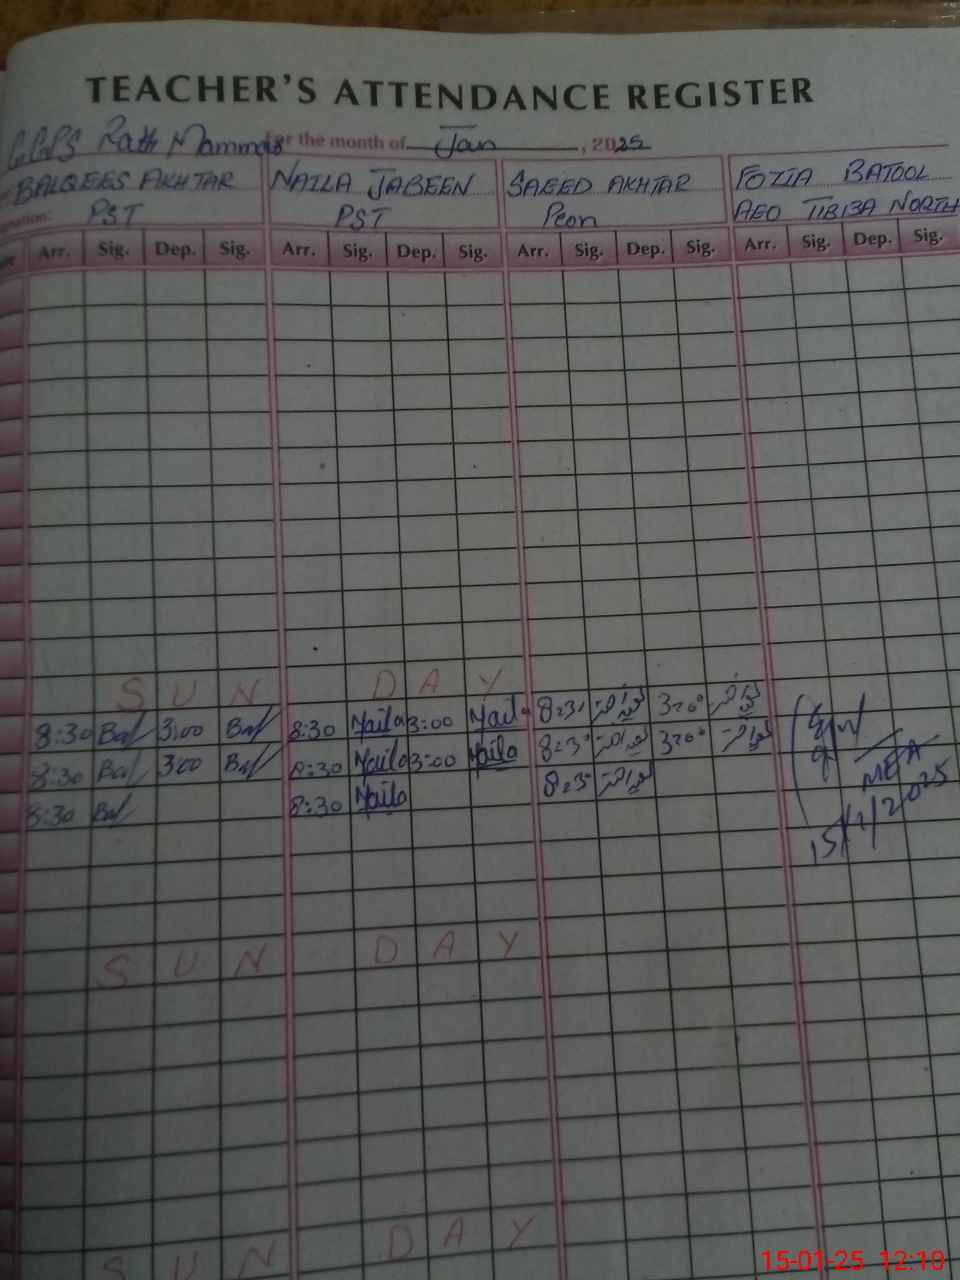 TEACHER'S ATTENDANCE REGISTER
GGPS Rath Mammar For the month of Jan, 2025
BALQEES AKHTAR NAILA JABEEN SAEED AKHTAR FOZIA BATOOL
PST PST Peon AEO TIBBA NORTH
Arr. Sig. Dep. Sig. Arr. Sig. Dep. Sig. Arr. Sig. Dep. Sig. Arr. Sig. Dep. Sig.
SUN DAY
8:30 Bal 3:00 Bal 8:30 Naila 3:00 Naila 8:30 3:00
8:30 Bal 3:00 Bal 8:30 Naila 3:00 Naila 8:30 3:00
MEA
8:30 Bal 8:30 Naila 8:30
15/1/2025
SUN DAY
SUN DAY
15-01-25 12:10